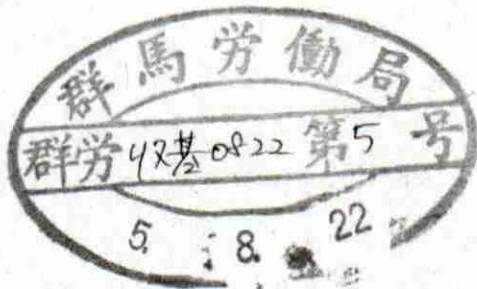 群馬労働局
群労収基0822第5号
5. 8. 22